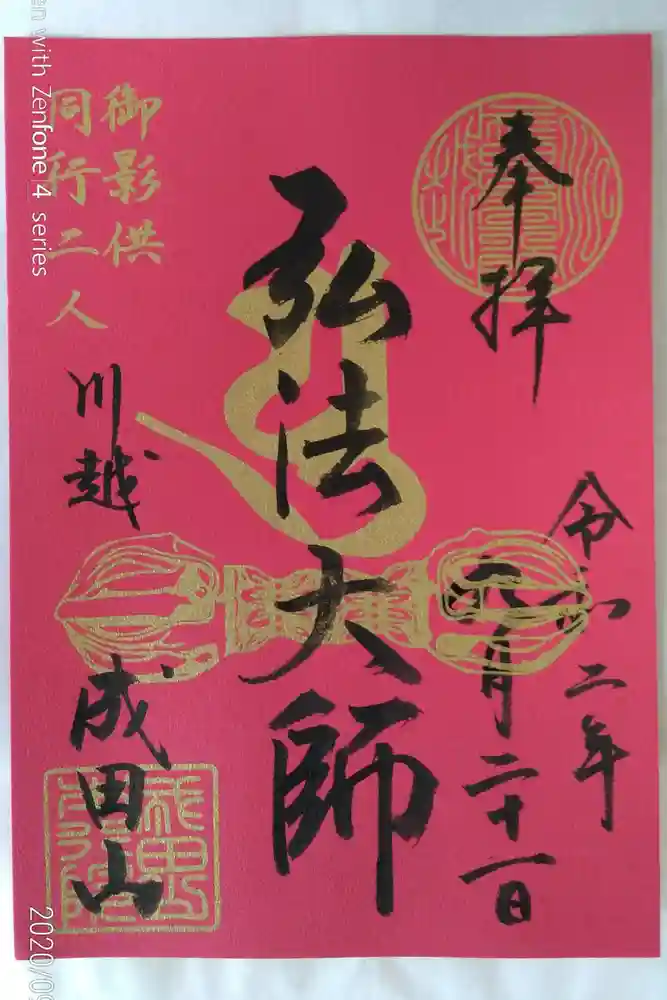 奉拝
令和二年
九月二十一日
弘法大師
御影供
同行二人
川越
成田山
with Zenfone 4 series
2020/09